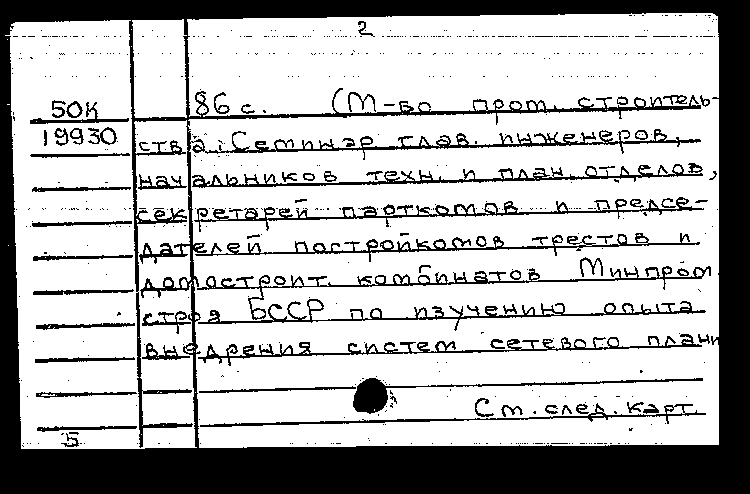 2
50К 86 с. (М-во пром. строитель-
19930 ства. Семинар глав. инженеров,
начальников техн. и план. отделов,
секретарей парткомов и предсе-
дателей постройкомов трестов и
домостроит. комбинатов Минпром
строя БССР по изучению опыта
внедрения систем сетевого плани
См. след. карт.
5